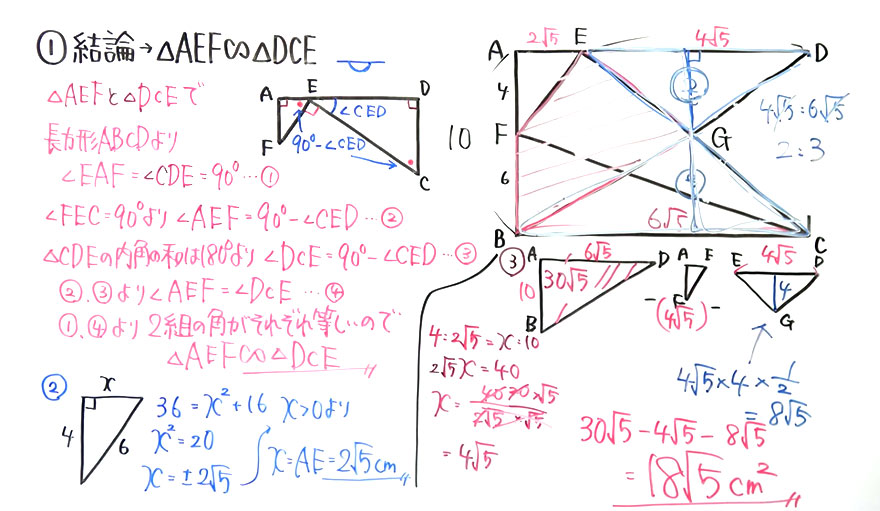 ① 結論→△AEF∽△DCE
△AEFと△DCEで
長方形ABCDより
∠EAF=∠CDE=90°…①
∠FEC=90°より∠AEF=90°-∠CED…②
△CDEの内角の和は180°より∠DCE=90°-∠CED…③
②、③より∠AEF=∠DCE…④
①、④より2組の角がそれぞれ等しいので
△AEF∽△DCE
A E D
∠CED
F 90°-∠CED
C
②
x
4 6
36=x²+16 x>0より
x²=20
x=±2√5 x=AE=2√5cm
2√5 4√5
A E D
4
② 4√5:6√5
10 F G 2:3
6
6√5
B C
③
A 6√5 D
10 30√5
B
A E
-(4√5)-
F
4√5
E D
4
G
4:2√5=x:10
2√5x=40
x=40 20×√5
2√5×√5
=4√5
4√5×4×1/2
=8√5
30√5-4√5-8√5
=18√5cm²